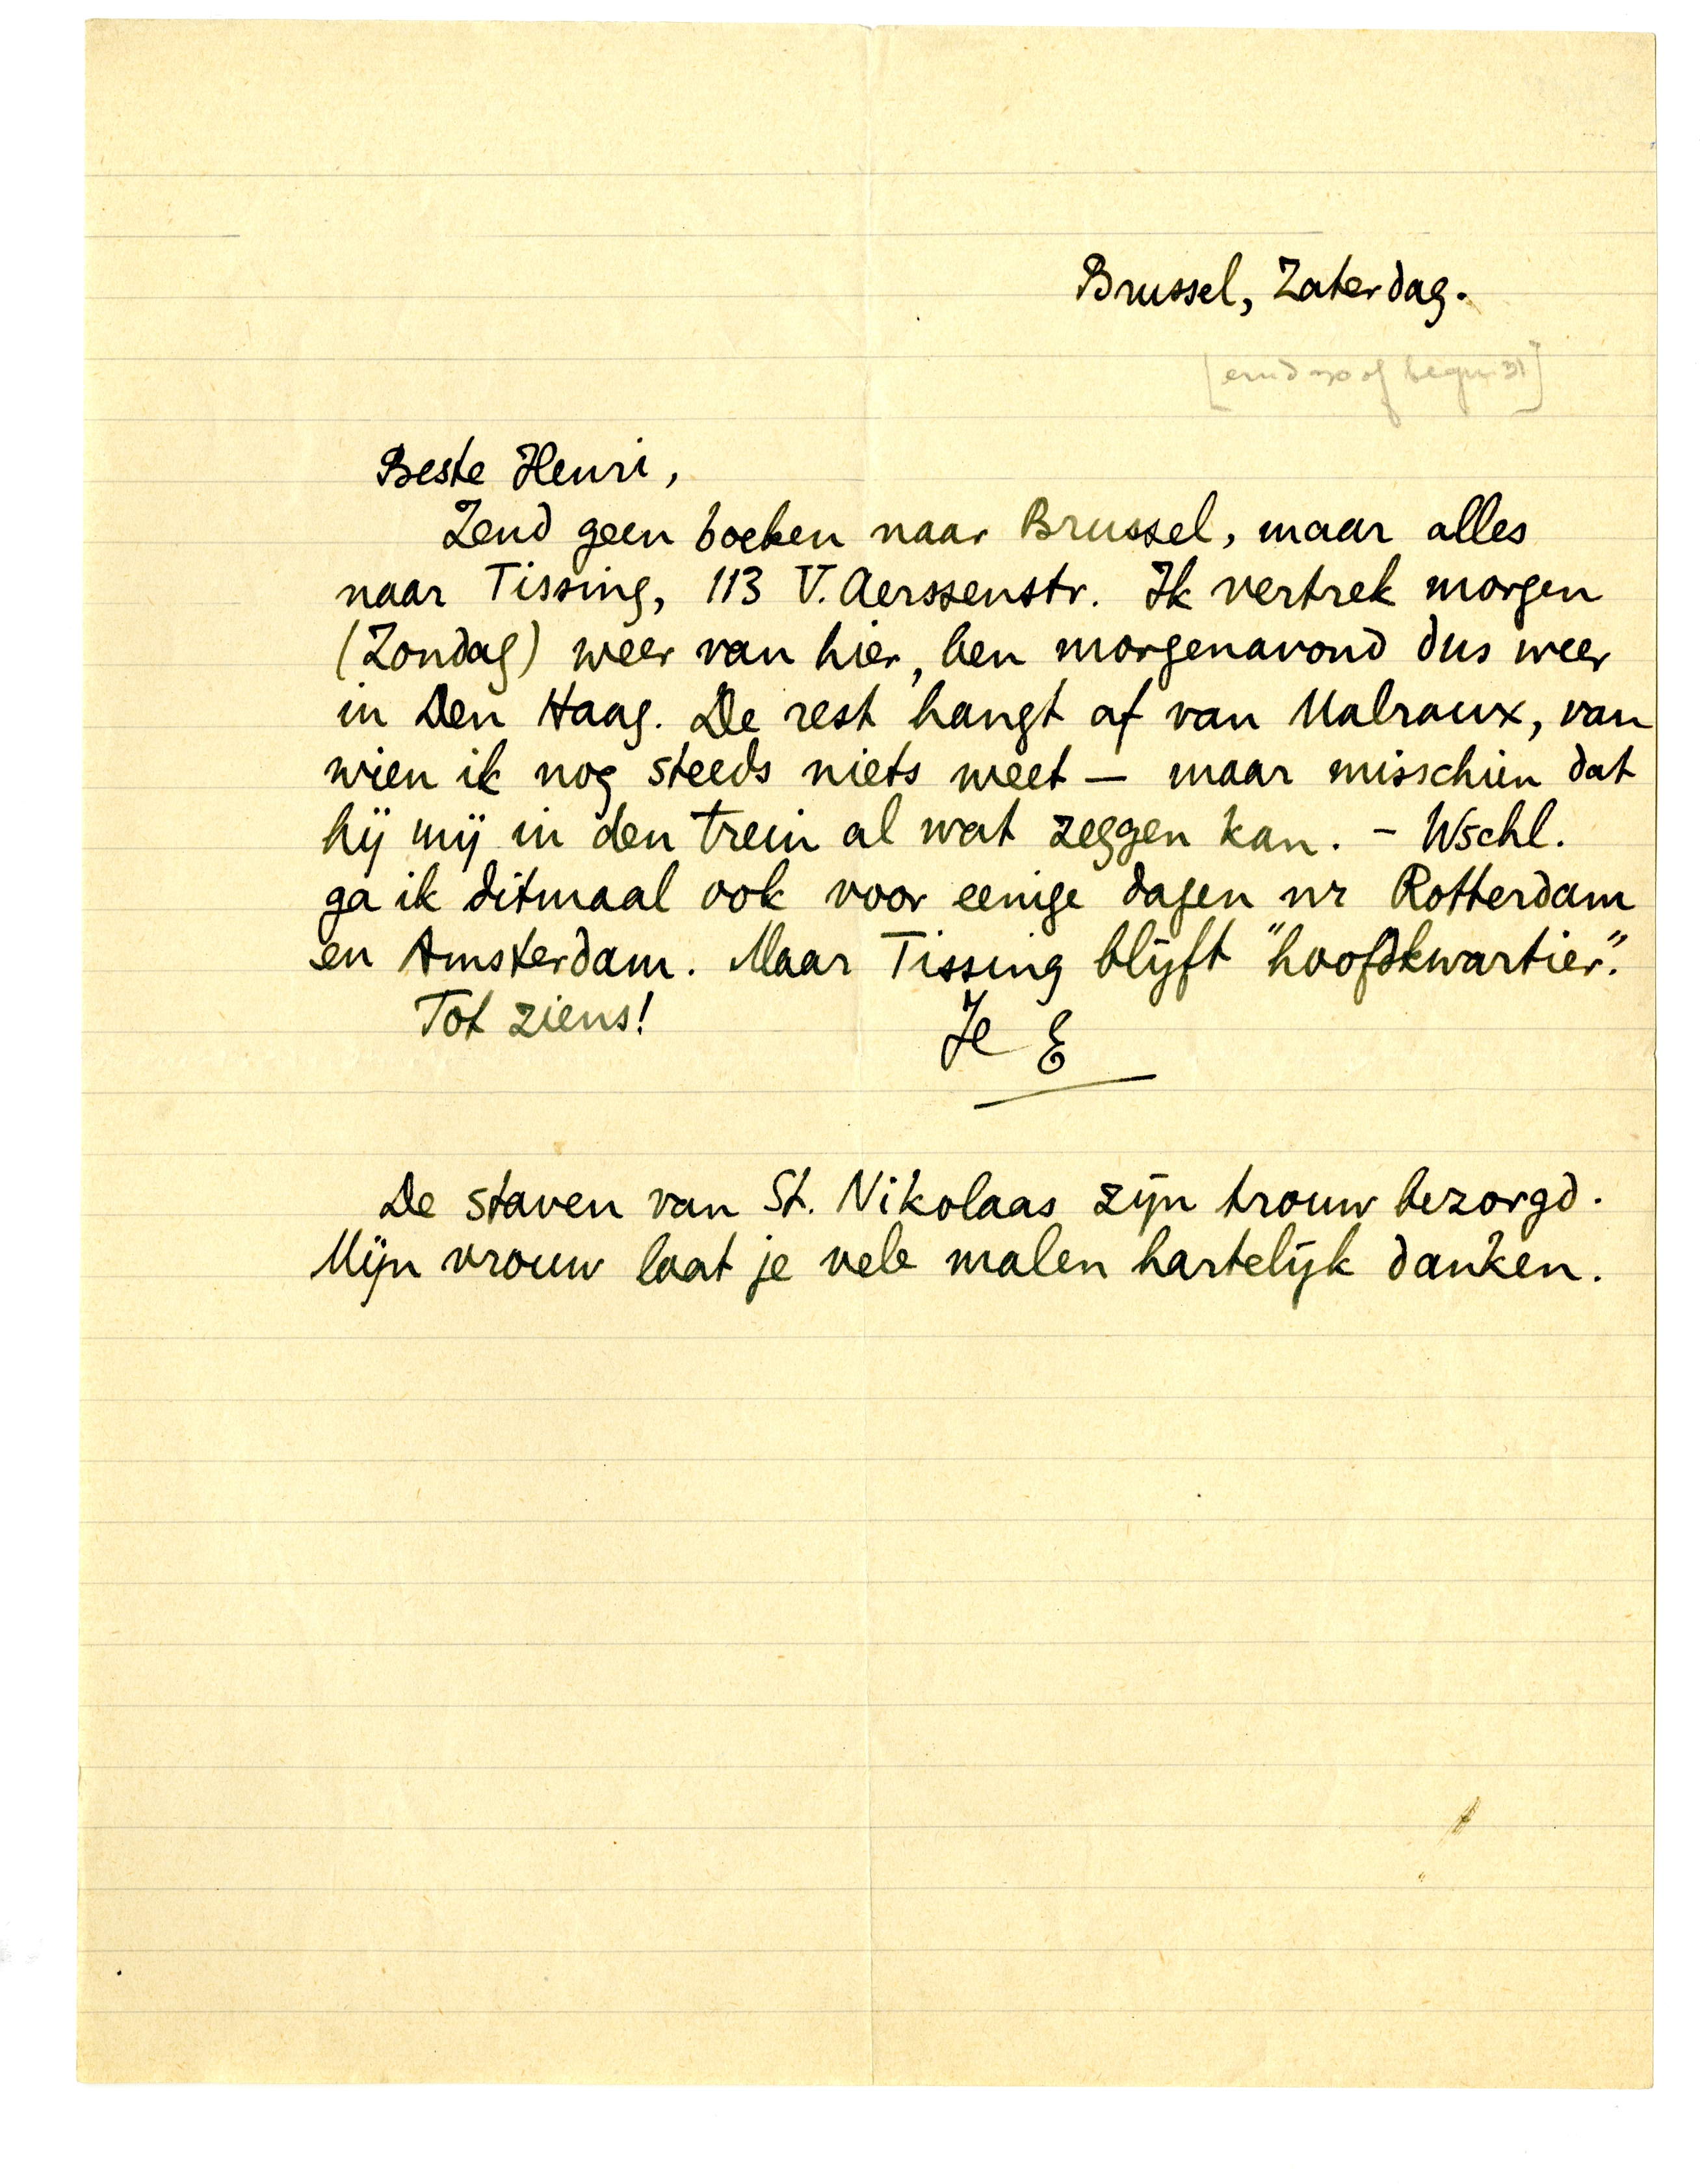 Brussel, Zaterdag.
[eind 30 of begin 31]
Beste Henri,
Zend geen boeken naar Brussel, maar alles
naar Tissing, 113 V. Aerssenstr. Ik vertrek morgen
(Zondag) weer van hier, ben morgenavond dus weer
in Den Haag. De rest hangt af van Malraux, van
wien ik nog steeds niets weet — maar misschien dat
hij mij in den trein al wat zeggen kan. – Wschl.
ga ik ditmaal ook voor eenige dagen nr Rotterdam
en Amsterdam. Maar Tissing blijft "hoofdkwartier".
Tot ziens!
Je E
De staven van St. Nikolaas zijn trouw bezorgd.
Mijn vrouw laat je vele malen hartelijk danken.